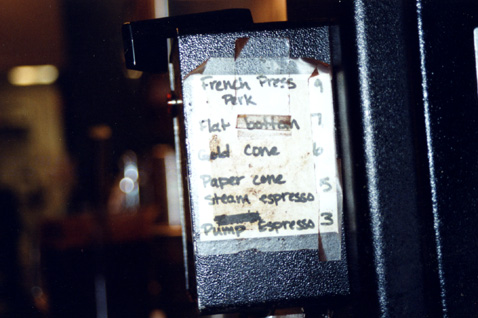 French Press 9
Perk
Flat bottom 7
Gold cone 6
Paper cone 5
steam espresso
Pump Espresso 3